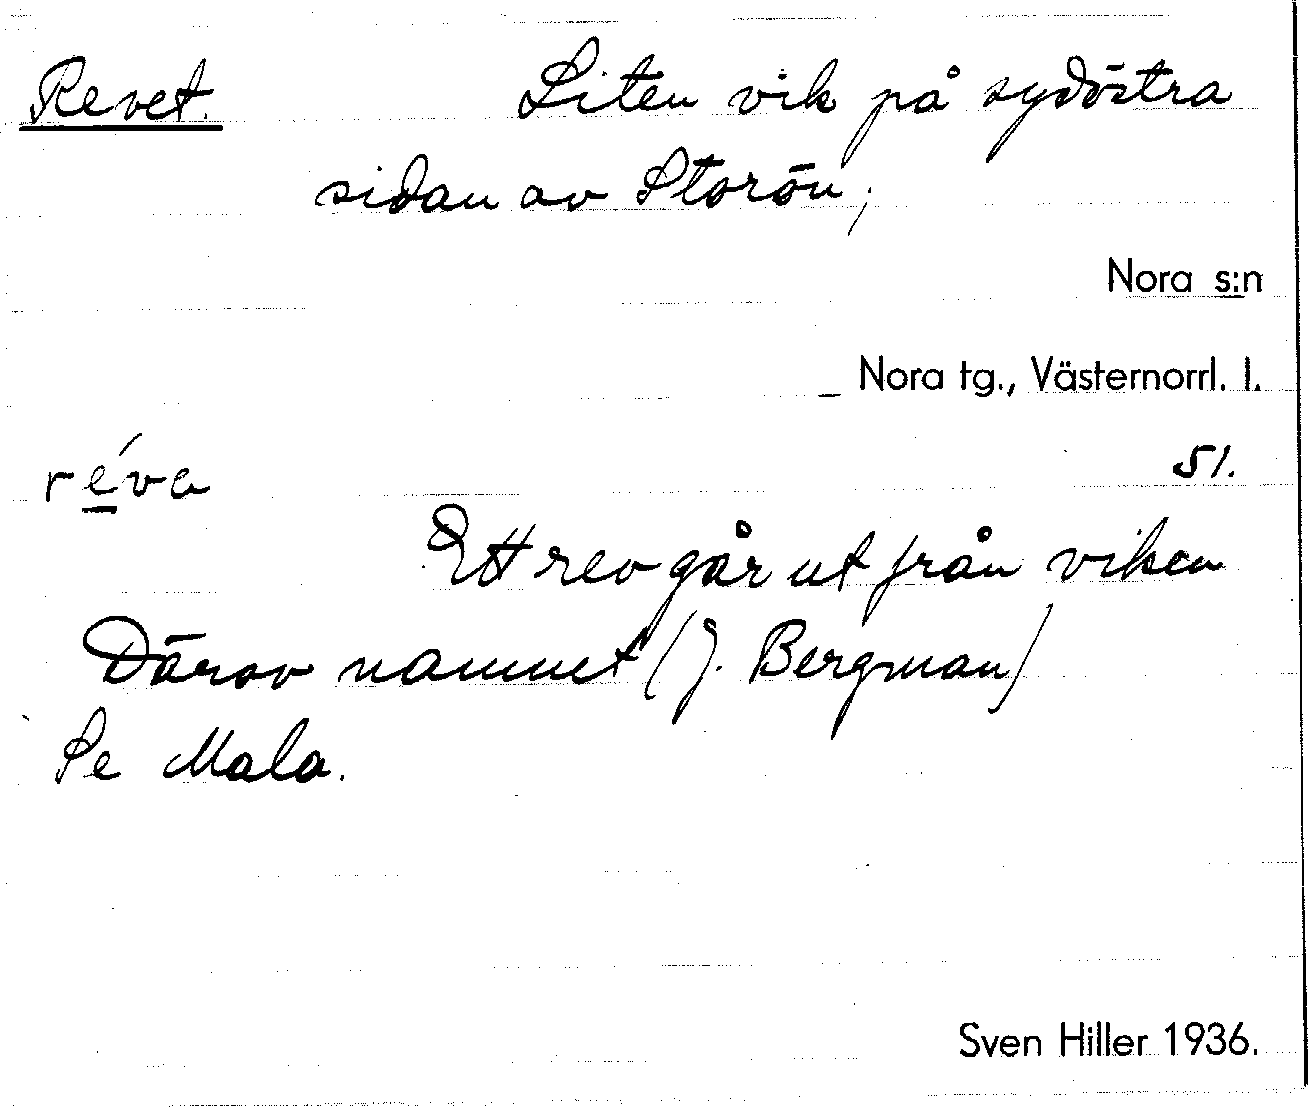 Revet. Liten vik på sydöstra
sidan av Storön,
Nora s:n
Nora tg., Västernorrl. l.
réva 51.
Ett rev går ut från viken
Därav namnet (J. Bergman)
Se Mala.
Sven Hiller 1936.